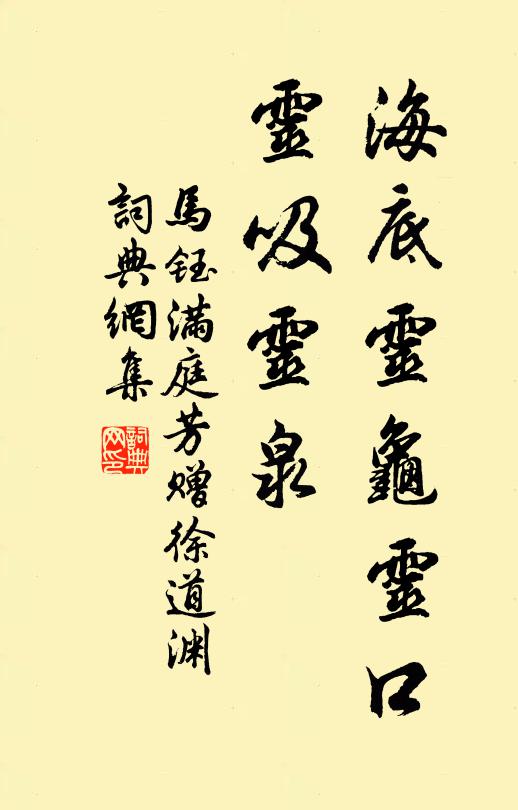 海底靈龜靈口
靈吸靈泉
馬鈺滿庭芳贈徐道渊
詞典網集
詞典網印